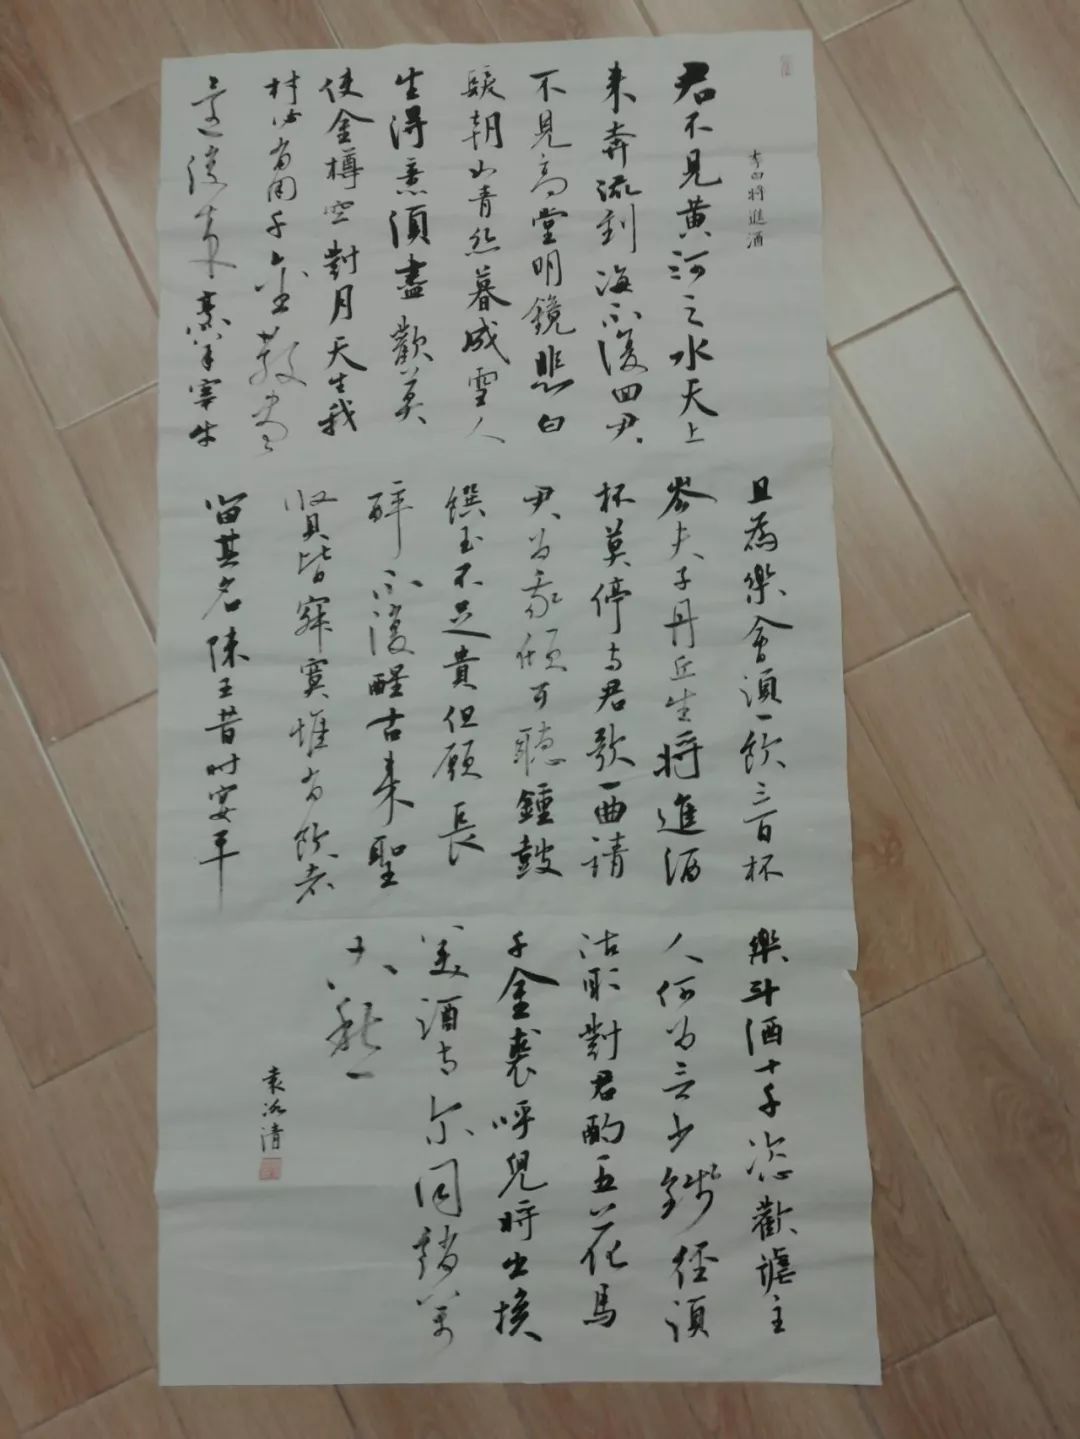 李白將進酒
君不見黄河之水天上
来奔流到海不復回君
不見高堂明鏡悲白
髮朝如青丝暮成雪人
生得意須盡歡莫
使金樽空對月天生我
材必有用千金散盡
還復来烹羊宰牛
且為樂會須一飲三百杯
岑夫子丹丘生將進酒
杯莫停与君歌一曲請
君为我傾耳聽鍾鼓
饌玉不足貴但願長
醉不復醒古来聖
賢皆寂寞惟有飲者
留其名陳王昔时宴平
樂斗酒十千恣歡謔主
人何为言少錢徑須
沽取對君酌五花馬
千金裘呼兒將出换
美酒与尔同銷萬
古愁
袁清